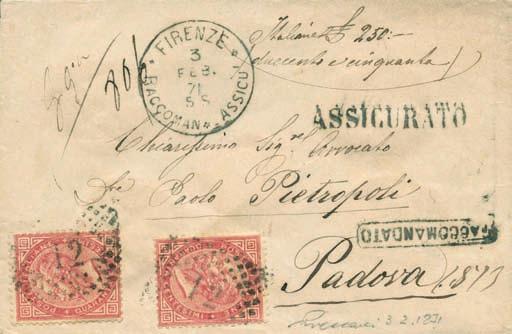 Italiane £ 250:-
(duecento e cinquanta)
806
FIRENZE
3
FEB.
71
5 S
RACCOMAN. ASSICU
ASSICURATO
Chiarissimo Sig.re Avvocato
Paolo Pietropoli
RACCOMANDATO
Padova
12
12
3.2.1871